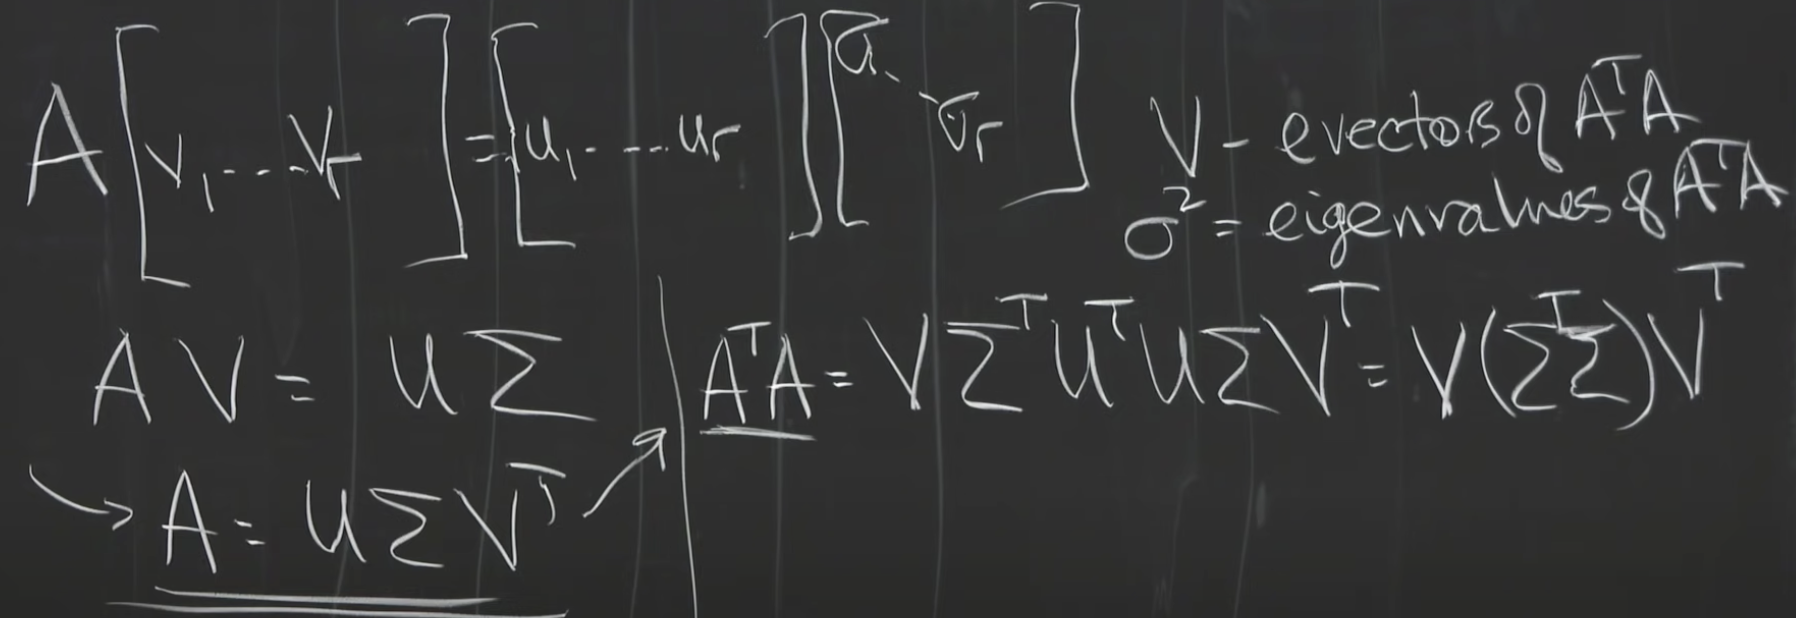 A [v₁ ... vᵣ] = [u₁ ... uᵣ] [σ₁ ⋱ σᵣ]
V - evectors of AᵀA
σ² = eigenvalues of AᵀA
A V = U Σ
A = U Σ Vᵀ
AᵀA = V Σᵀ Uᵀ U Σ Vᵀ = V (ΣᵀΣ) Vᵀ